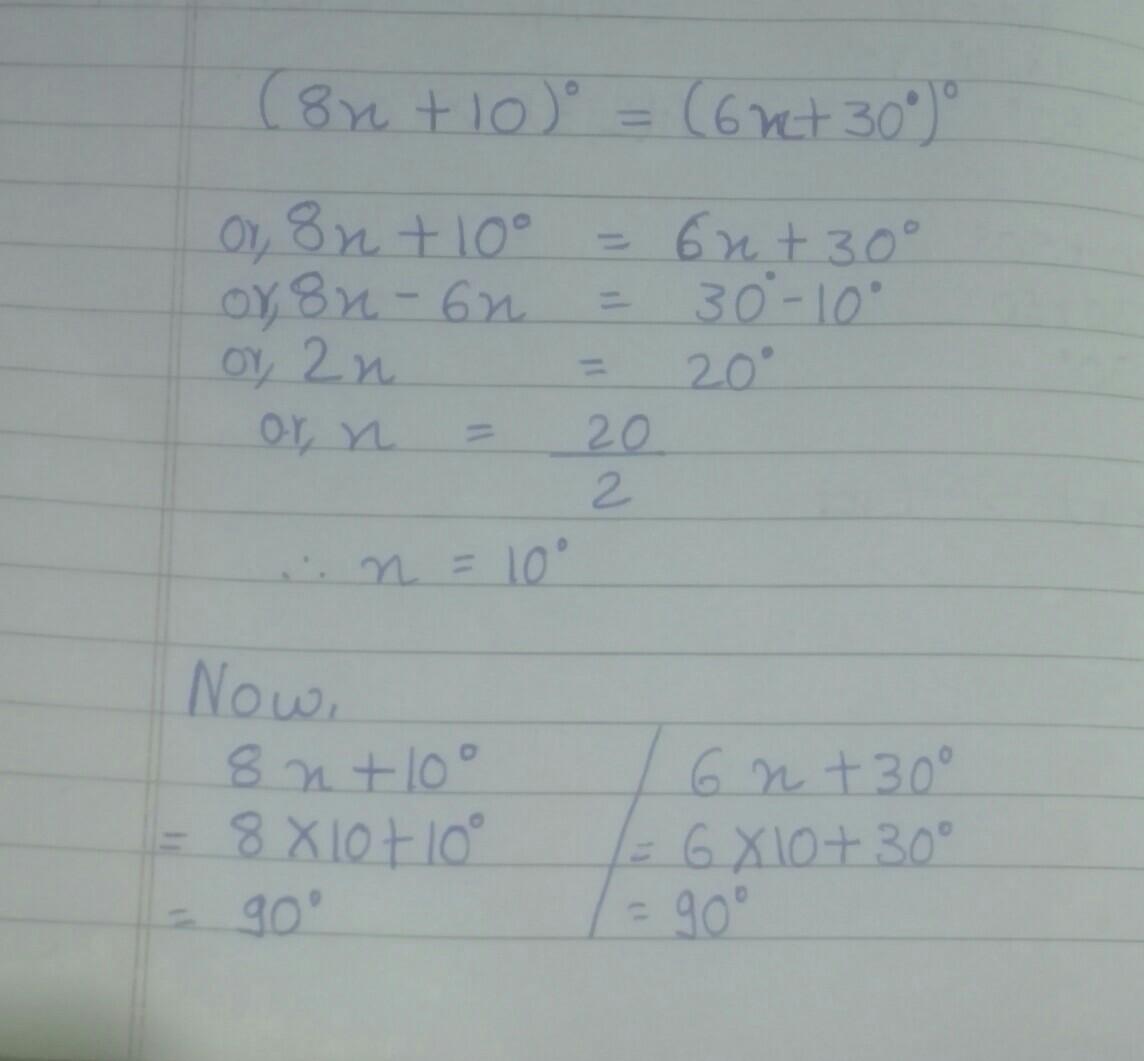 (8x + 10)° = (6x + 30°)°
or, 8x + 10° = 6x + 30°
or, 8x - 6x = 30° - 10°
or, 2x = 20°
or, x = 20/2
∴ x = 10°
Now,
8x + 10° / 6x + 30°
= 8 × 10 + 10° / = 6 × 10 + 30°
= 90° / = 90°